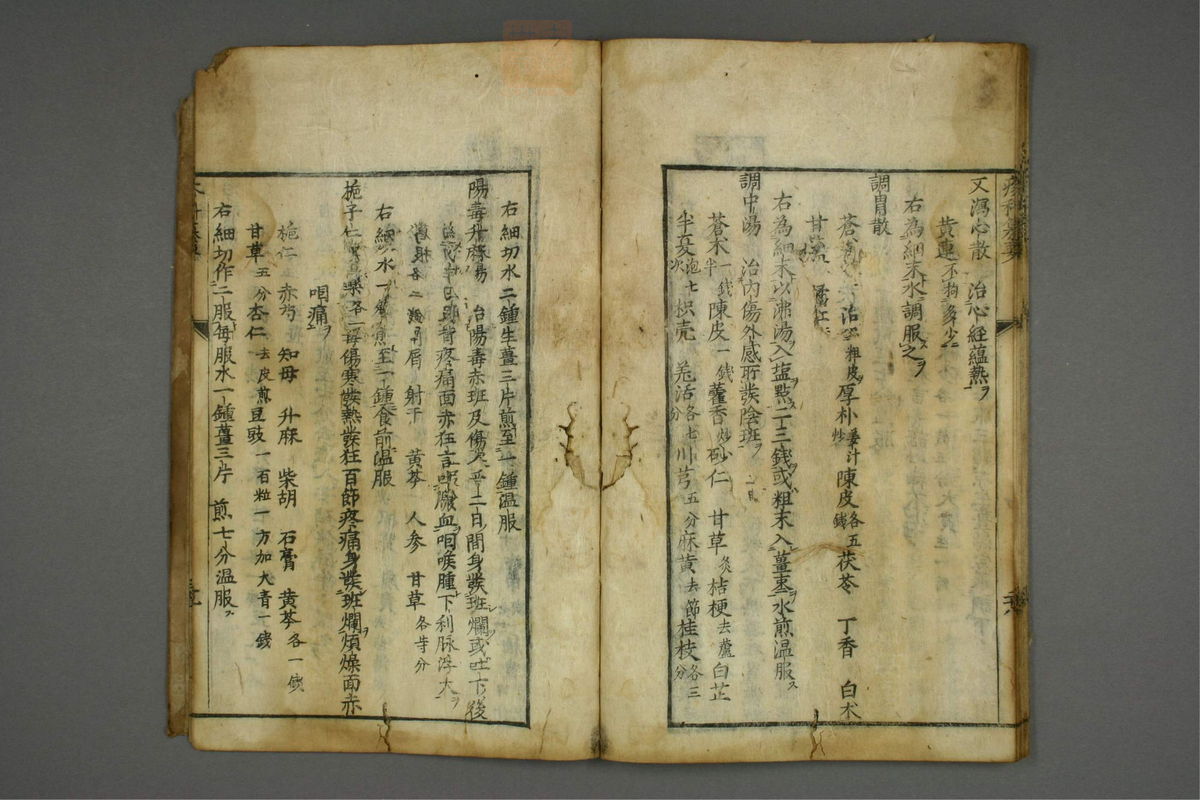 又瀉心散　治心經蘊熱ヲ
黄連　不拘多少
右為細末水調服之ヲ
調胃散
治　粗皮　厚朴　姜汁炒　陳皮　各五錢　茯苓　丁香　白朮
甘草　藿
右為細末以沸湯入塩點二三錢或粗末入薑棗水煎温服ス
調中湯　治内傷外感所發陰斑ヲ
蒼朮　一錢半　陳皮　一錢　藿香　炒　砂仁　甘草　炙　桔梗　去蘆　白芷
半夏　泡七次　枳壳　羌活　各七分　川芎　五分　麻黄　去節　桂枝　各三分
右細切水二鍾生薑三片煎至一鍾温服
陽毒升麻湯　治陽毒赤班及傷寒一二日間身發班爛或吐下後
皆疼痛面赤狂言吐膿血咽喉腫下利脉浮大
各二　犀屑　射干　黄芩　人參　甘草　各等分
右　水一　煎至一鍾食前温服
梔子仁　傷寒發熱發狂百節疼痛身發班爛煩燥面赤
咽痛ヲ
梔仁　赤芍　知母　升麻　柴胡　石膏　黄芩　各一錢
甘草　五分　杏仁　去皮煎　豆豉　一百粒一方加大青一錢
右細切作二服每服水一鍾薑三片　煎七分温服ス